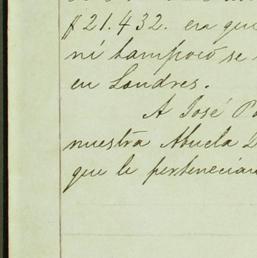 $21.432. era que
ni tampoco se
en Londres.
A José
nuestra Abuela
que le pertenecian